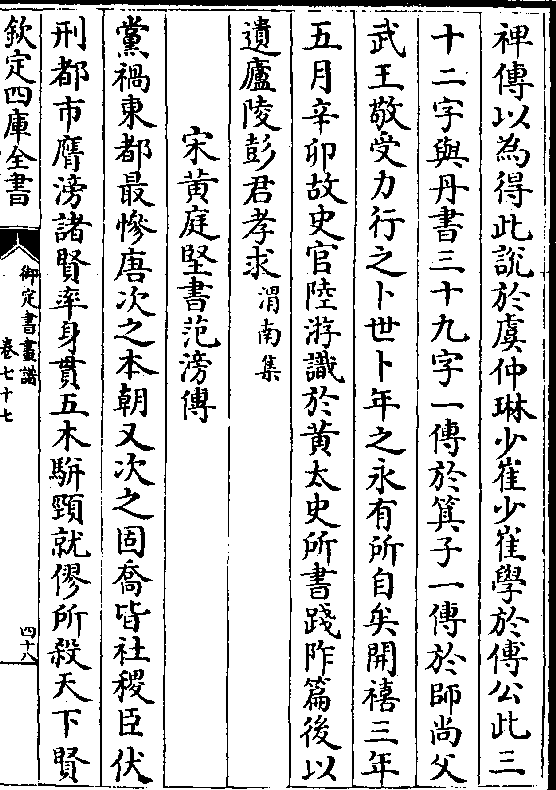 禆傳以為得此說於虞仲琳少崔少崔學於傅公此三
十二字與丹書三十九字一傳於箕子一傳於師尚父
武王敬受力行之卜世卜年之永有所自矣開禧三年
五月辛卯故史官陸游識於黄太史所書踐阼篇後以
遺廬陵彭君孝求渭南集
宋黄庭堅書范滂傳
黨禍東都最慘唐次之本朝又次之固喬皆社稷臣伏
刑都市膺滂諸賢率身貫五木駢頸就僇所殺天下賢
欽定四庫全書
御定書畫譜
卷七十七
四十八